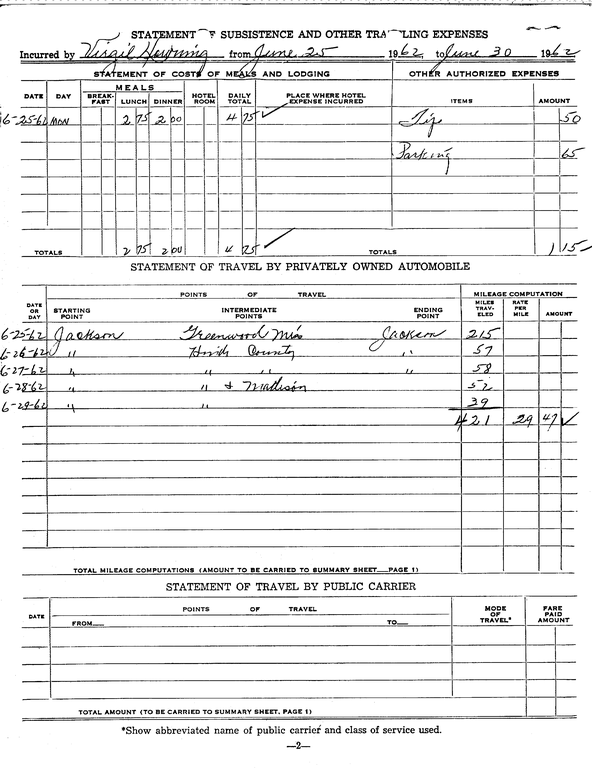 STATEMENT OF SUBSISTENCE AND OTHER TRAVELING EXPENSES
Incurred by Virgil from June 25 1962 to June 30 1962
STATEMENT OF COSTS OF MEALS AND LODGING OTHER AUTHORIZED EXPENSES
DATE DAY MEALS BREAK-FAST LUNCH DINNER HOTEL ROOM DAILY TOTAL PLACE WHERE HOTEL EXPENSE INCURRED ITEMS AMOUNT
6-25-62 MON 2 75 2 00 4 75 Tip 50
Parking 65
TOTALS 2 75 2 00 4 75 TOTALS 1 15
STATEMENT OF TRAVEL BY PRIVATELY OWNED AUTOMOBILE
POINTS OF TRAVEL MILEAGE COMPUTATION
DATE OR DAY STARTING POINT INTERMEDIATE POINTS ENDING POINT MILES TRAV-ELED RATE PER MILE AMOUNT
6-25-62 Jackson Greenwood Miss Jackson 215
6-26-62 " Hinds County " 57
6-27-62 " " " " 58
6-28-62 " " & Madison 52
6-29-62 " " 39
421 29 47
TOTAL MILEAGE COMPUTATIONS (AMOUNT TO BE CARRIED TO SUMMARY SHEET__PAGE 1)
STATEMENT OF TRAVEL BY PUBLIC CARRIER
DATE POINTS OF TRAVEL MODE OF TRAVEL* FARE PAID AMOUNT
FROM__ TO__
TOTAL AMOUNT (TO BE CARRIED TO SUMMARY SHEET, PAGE 1)
*Show abbreviated name of public carrier and class of service used.
—2—